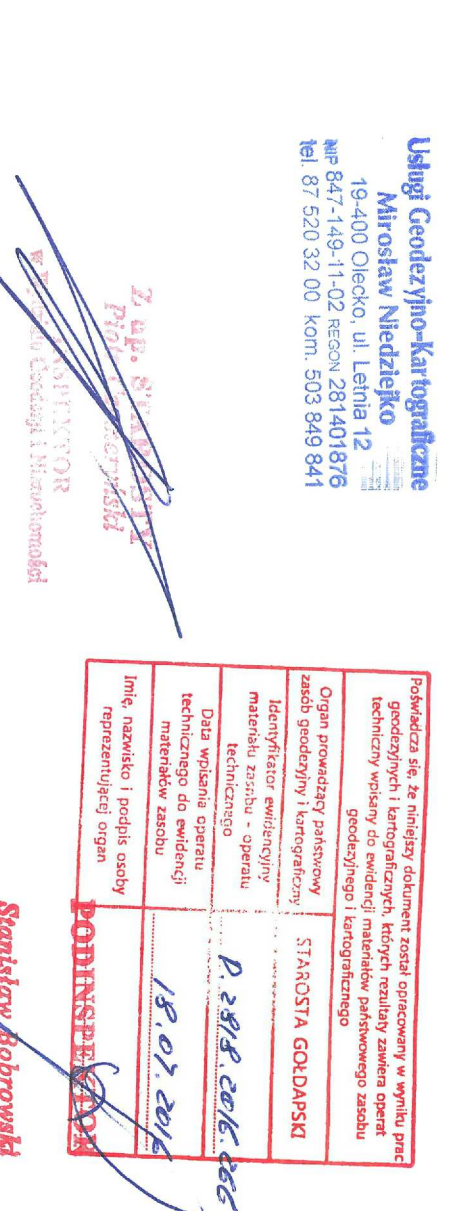 Usługi Geodezyjno-Kartograficzne
Mirosław Niedziejko
19-400 Olecko, ul. Letnia 12
NIP 847-149-11-02 REGON 281401876
tel. 87 520 32 00 kom. 503 849 841
Z up. STAROSTY
INSPEKTOR
Geodezji i Nieruchomości
Poświadcza się, że niniejszy dokument został opracowany w wyniku prac
geodezyjnych i kartograficznych, których rezultaty zawiera operat
techniczny wpisany do ewidencji materiałów państwowego zasobu
geodezyjnego i kartograficznego
Organ prowadzący państwowy
zasób geodezyjny i kartograficzny
STAROSTA GOŁDAPSKI
Identyfikator ewidencyjny
materiału zasobu - operatu
technicznego
P.2818.2016.666
Data wpisania operatu
technicznego do ewidencji
materiałów zasobu
18.07.2016
Imię, nazwisko i podpis osoby
reprezentującej organ
PODINSPEKTOR
Stanisław Bobrowski